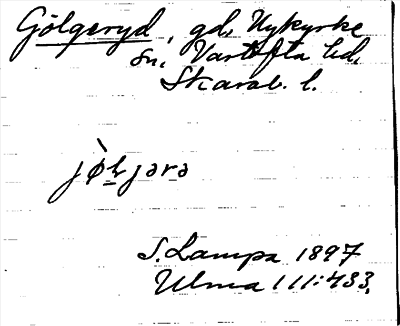 Gölgeryd, gd, Nykyrke
sn, Vartofta hd,
Skarab. l.
jø̀ḷjərə
S. Lampa 1897
Ulma 111:433.